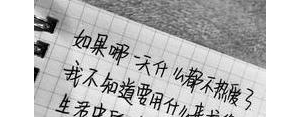 如果哪一天什么都不热爱了
我不知道要用什么来
生活中